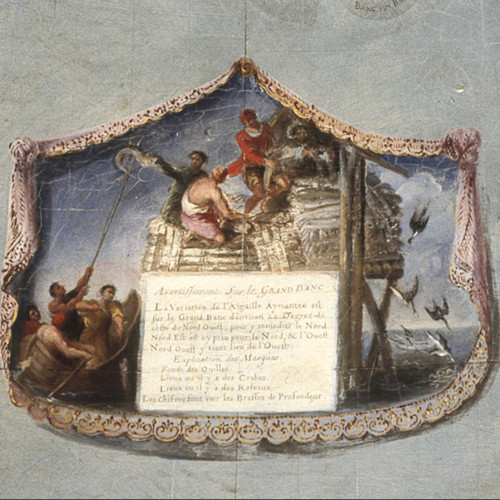 BANC
Avertissement Sur le GRAND BANC
La Variation de l'Aiguille Aymantée est
sur le Grand Banc d'environ Degrez du
côte du Nord Ouest, pour y remedier le Nord
Nord Est est icy pris pour le Nord, & l'Ouest
Nord Ouest y tient lieu de l'Ouest.
Explication des Marques
Fonds des Quilles
Lieux ou il y a des Crabes
Lieux ou il y a des
Les Chifres font voir les Brasses de Profondeur.